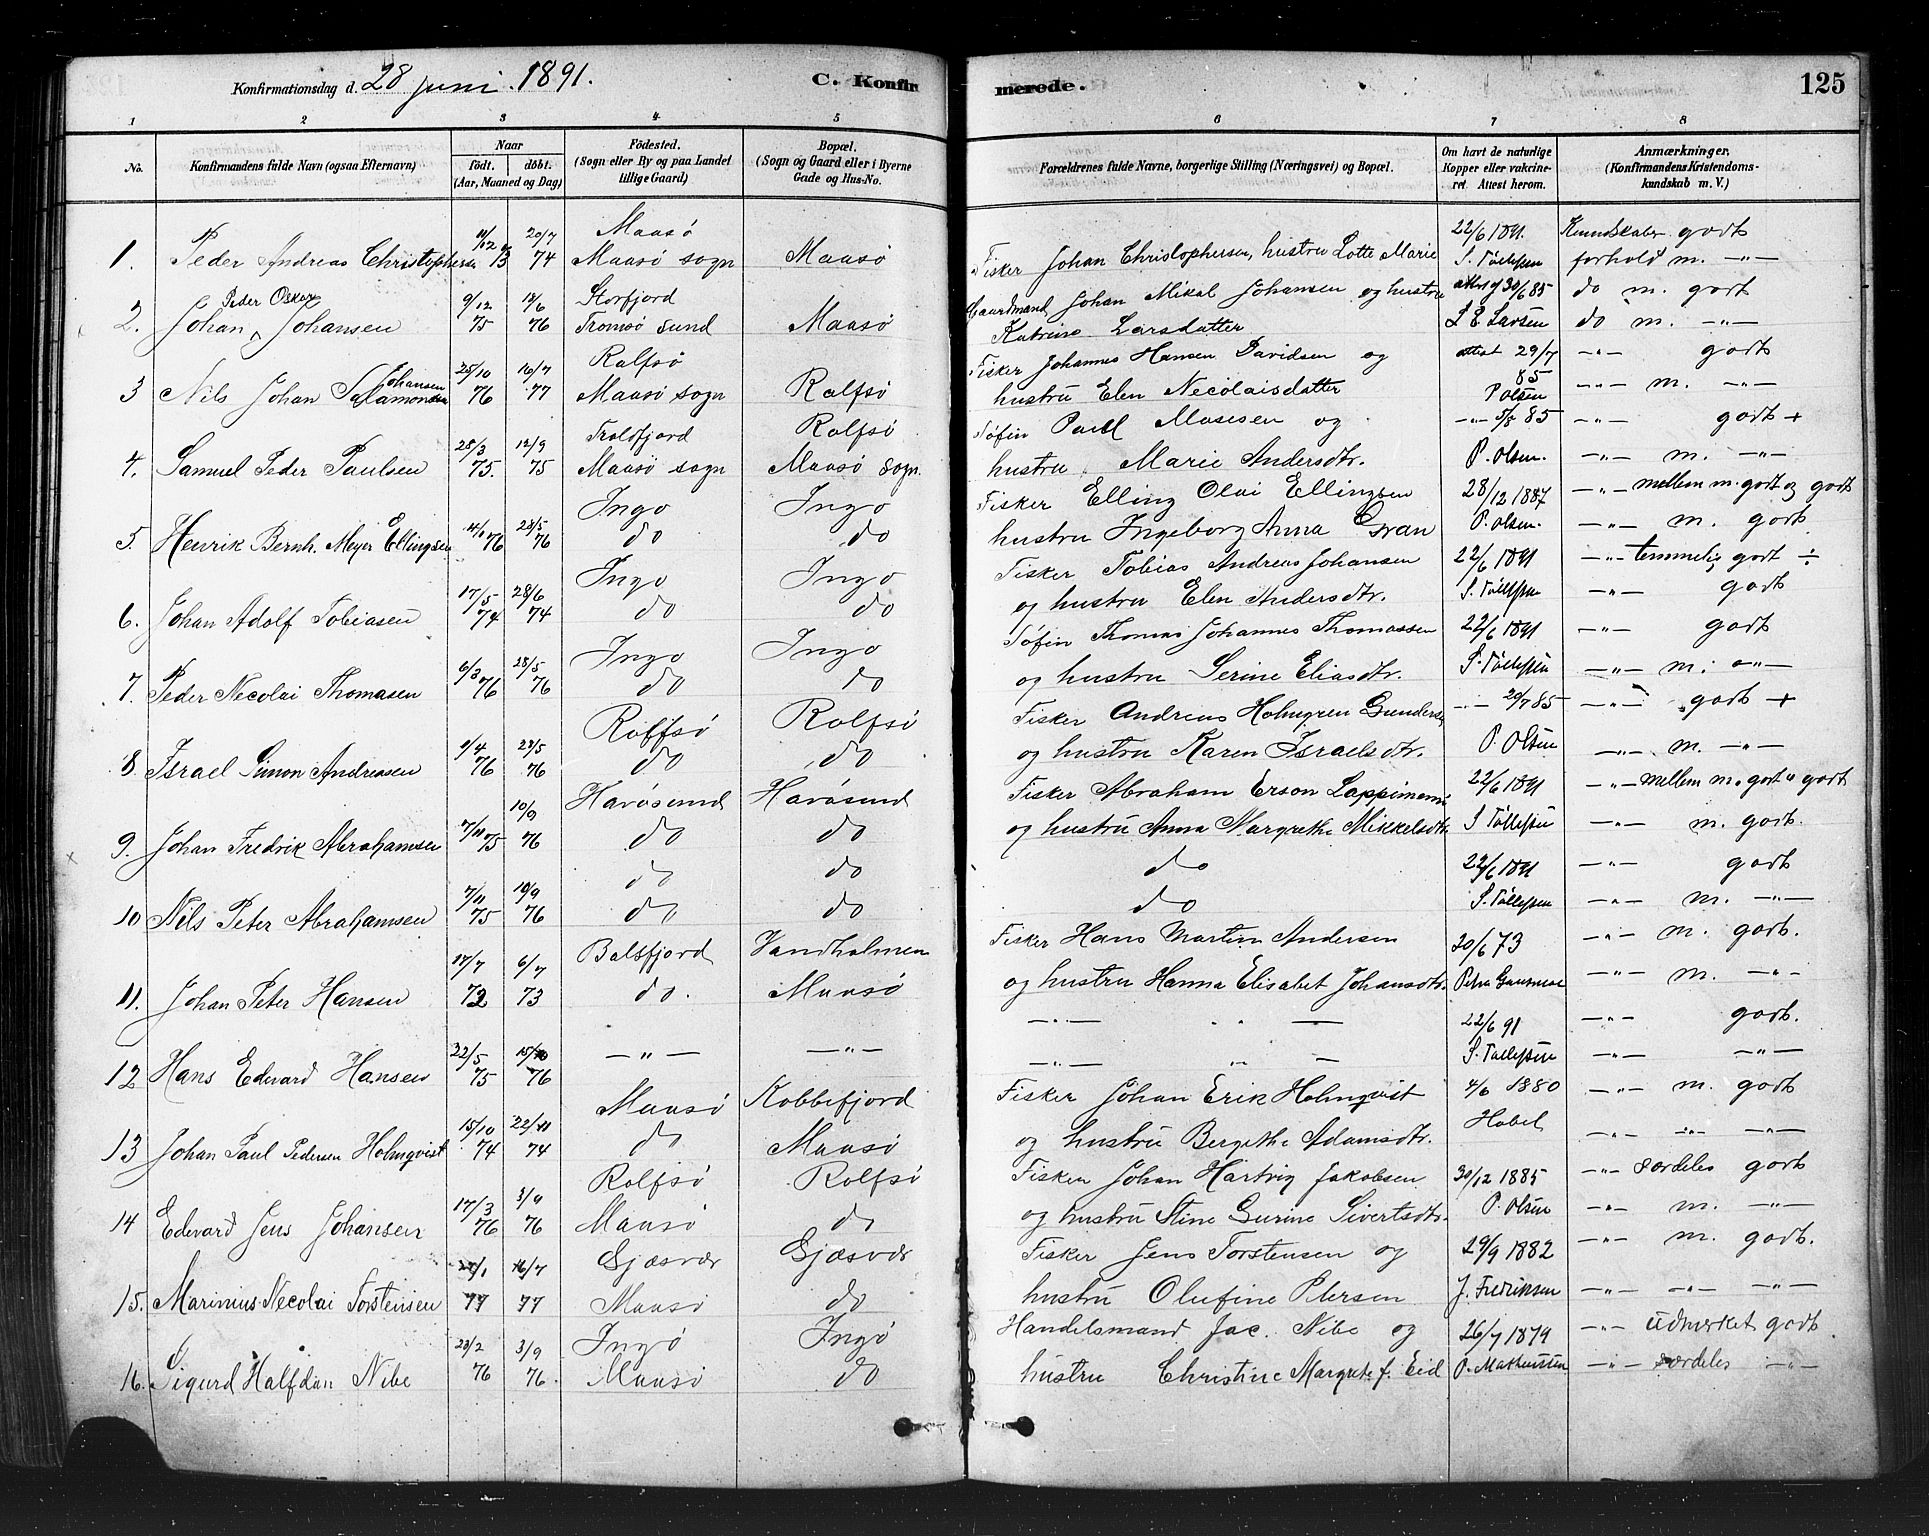 Konfirmationsdag d. 28 juni 1891. C. Konfirmerede. 125
1 2 3 4 5 6 7 8
No. Konfirmandens fulde Navn (ogsaa Efternavn) Naar født. døbt. (Aar, Maaned og Dag) Fødested. (Sogn eller By og paa Landet tillige Gaard.) Bopæl. (Sogn og Gaard eller i Byerne Gade og Hus-No. Forældrenes fulde Navne, borgerlige Stilling (Næringsvei) og Bopæl. Om havt de naturlige Kopper eller vakcineret. Attest herom. Anmærkninger, (Konfirmandens Kristendomskundskab m. V.)
11/12 20/7 Maasø 22/6 1891 Kundskaber godt
1. Peder Andreas Christophersen 73 74 Maasø sogn Maasø Fisker Johan Christophersen, hustru Lotte Marie S. Tollefsen forhold m. -"-
Peder Oskar 9/12 12/6 Storfjord Gaardmand Johan Mikal Johansen og hustru attest 30/6 85 do m. godt
2. Johan Johansen 75 76 Tromsø sund Maasø Katrine Larsdatter L E Larsen do m. -"-
Johansen 25/10 16/7 Rolfsø Fisker Johannes Hansen Davidsen og attest 29/7 85 -"- godt
3 Nils Johan Salamonsen 76 77 Maasø sogn Rolfsø hustru Elen Necolaisdatter P Olsen -"- m. -"-
28/3 12/9 Troldfjord Rolfsø Søfin Paul Mosesen og -"- 5/8 85 -"- godt +
4. Samuel Peder Paulsen 75. 75 Maasø sogn Maasø sogn hustru Marie Andersdtr. P. Olsen. -"- m. -"-
4/1 28/5 Ingø Ingø Fisker Elling Olai Ellingsen 28/12 1887 -"- mellem m. godt og godt
5. Henrik Bernh. Meyer Ellingsen 76 76 do do hustru Ingeborg Anna Gran P. Olsen. -"- m. godt
17/5 28/6 Ingø Ingø Fisker Tobias Andreas Johansen 22/6 1891 -"- temmelig godt ÷
6. Johan Adolf Tobiasen 74 74 do do og hustru Elen Andersdtr. S. Tollefsen -"- godt
6/3 28/5 Ingø Ingø Søfin Thomas Johannes Thomassen 22/6 1891 -"- godt
7. Peder Necolai Thomasen 76 76 do do og hustru Serine Eliasdtr. S. Tollefsen -"- m. -"-
9/4 28/5 Rolfsø Rolfsø Fisker Andreas Holmgren Gundersen -"- 20/7 85 -"- godt +
8 Israel Simon Andreasen 76 76 do do og hustru Karen Israelsdtr. P. Olsen -"- m. -"-
7/11 10/9 Havøsund Havøsund Fisker Abraham Erson Lappinemi 22/6 1891 -"- mellem m. godt " godt
9. Johan Fredrik Abrahamsen 75 76 do do og hustru Anna Margrethe Mikkelsdtr. S Tollefsen -"- m. godt.
7/11 10/9 do do do 22/6 1891 -"- godt
10 Nils Peter Abrahamsen 75 76 do do do S. Tollefsen -"- m. -"-
17/7 6/7 Balsfjord Vandholmen Fisker Hans Martin Andersen 30/6 73 -"- m. godt.
11. Johan Peter Hansen 72 73 do. Maasø og hustru Hanna Elisabet Johansdtr. -"- m. -"-
22/5 -"- -"- -"- " — 22/6 91 -"- godt.
12 Hans Edvard Hansen 75 76 -"- " — S. Tollefsen -"- -"-
15/10 22/11 Maasø Kobbefjord Fisker Johan Erik Holmqvist 4/6 1880 -"- m. godt
13 Johan Paul Pedersen Holmqvist 74 74 do Maasø og hustru Bergithe Adamsdtr. Habel -"- -"- -"-
17/3 3/9 Rolfsø Rolfsø Fisker Johan Hartvig Jakobsen 30/12 1885 -"- særdeles godt
14 Edvard Jens Johansen 76 76 Maasø do og hustru Stine Gurine Sivertsdtr. P. Olsen -"- m. -"-
16/7 Gjæsvær Gjæsvær Fisker Jens Torstensen og 29/9 1882 -"- m. godt.
15. Marinius Necolai Torstensen 77 77 Maasø do hustru Olufine Petersen J. Fredriksen -"- -"- -"-
23/2 3/9 Ingø Ingø Handelsmand Jac. Nibe og 26/7 1879 -"- udmerket godt
16. Sigurd Halfdan Nibe 76 76. Maasø do hustru Christine Margrete f. Eid P. Mathissen -"- særdeles -"-